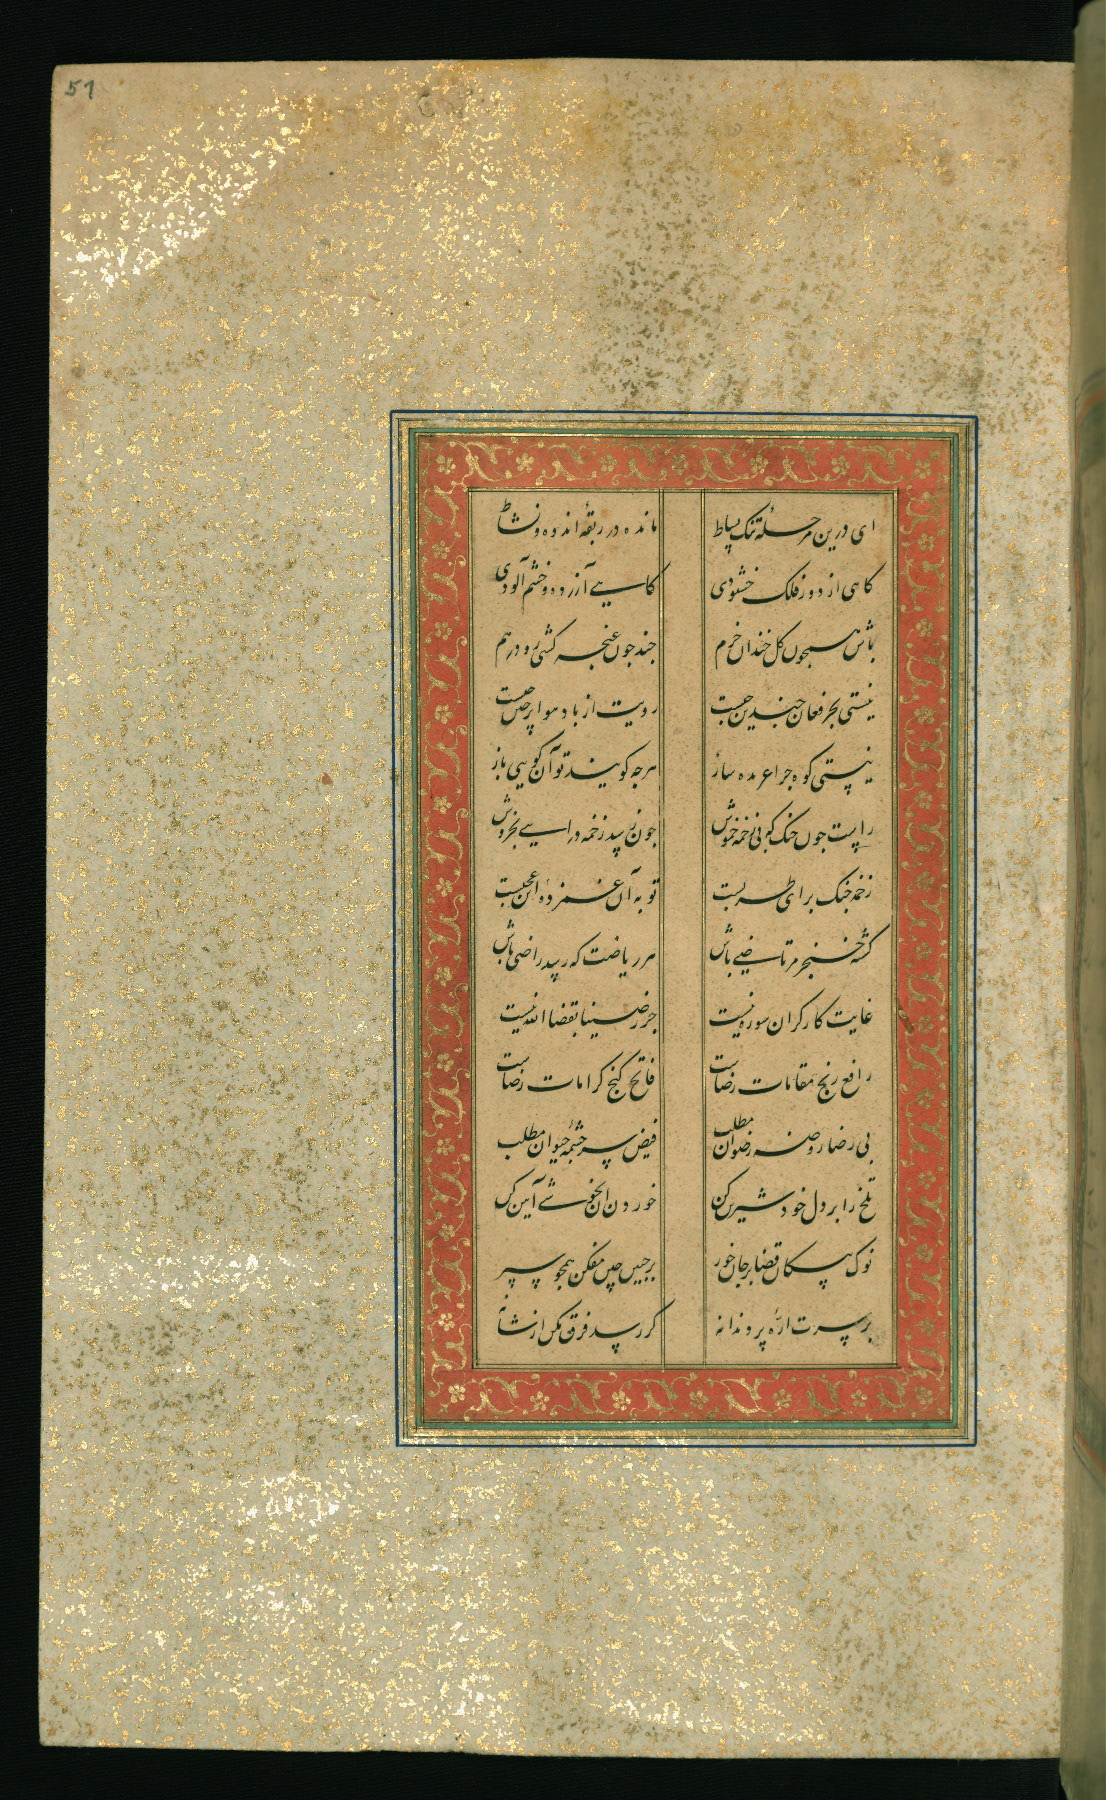 51
ای درین مرحلهٔ تنک بساط مانده در ربقهٔ اندوه و نشاط
کاهی از دور فلک خشنودی کاهی آزرده و خشم آلودی
باش همجون کل خندان خرم جند جون غنجه کشی رو درهم
نیستی بحر فغان جندین جیست رویت از باد هوا پرچین جیست
نیستی کوه جرا عربده ساز هرجه کویند تو آن کویی باز
راست جون جنک که بی زخمه خموش جون رسد زخمه درایی بخروش
زخمه جنک برای طربست تو به آن غمزدهٔ این عجبست
کشته خنجر مرتاضی باش هر ریاضت که رسد راضی باش
غایت کار کران سوره نیست جز رضینا بقضا الله نیست
رافع رنج مقامات رضاست فاتح کنج کرامات رضاست
بی رضا روضه رضوان مطلب فیض سرچشمهٔ حیوان مطلب
تلخ را بر دل خود شیرین کن خوردن آن بخوشی آیین کن
نوک پیکان قضا بر جان خور بر جبین چین مفکن همجو سپر
بر سرت ارّهٔ پر دندانه کر رسد فرق مکن از شانه